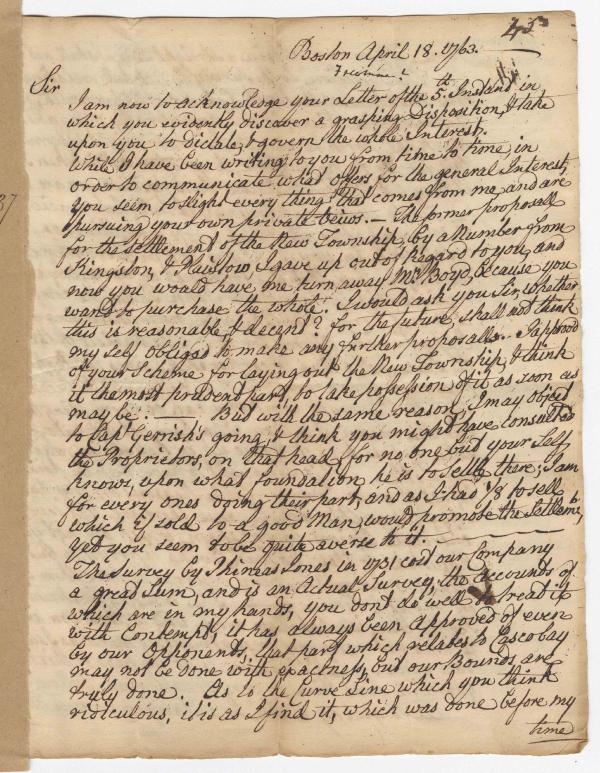 45
Boston April 18. 1763.
Sir
I am now to acknowledge your Letter of the 5th. Instant, in
which you evidently discover a grasping Disposition, & take
upon you to dictate, & govern the whole Interest.
While I have been writing to you from time to time, in
order to communicate what offers for the general Interest,
you seem to slight every thing that comes from me, and are
pursuing your own private veiws. — The former proposall
for the settlement of the New Township, by a Number from
Kingston, & Plaistow, I gave up out of regard to you, and
now you would have me turn away Mr Boyd, because you
want to purchase the whole. I would ask you Sir, whether
this is reasonable, & decent? for the future, shall not think
my self obliged to make any further proposalls. I approod
of your Scheme for laying out the New Township, & think
it the most prudent part, to take possession of it as soon as
may be. — But with the same reason, I may object
to Capt Gerrish's going, & think you might have consulted
the Proprietors, on that head, for no one but your Self,
knows, upon what foundation he is to settle there; I am
for every ones doing their part, and as I had 1/8 to sell
which if sold to a good Man, would promote the Settlemt,
yet you seem to be quite averse to it.
The Survey by Phineas Jones in 1731 cost our Company
a great Sum, and is an Actual Survey, the accounts of
which are in my hands, you dont do well to treat it
with Contempt, it has always been approved of even
by our Opponents, that part which relates to Casco bay
may not be done with exactness, but our Bounds are
truly done. As to the Curve Line which you think
ridiculous, it is as I find it, which was done before my
time
37